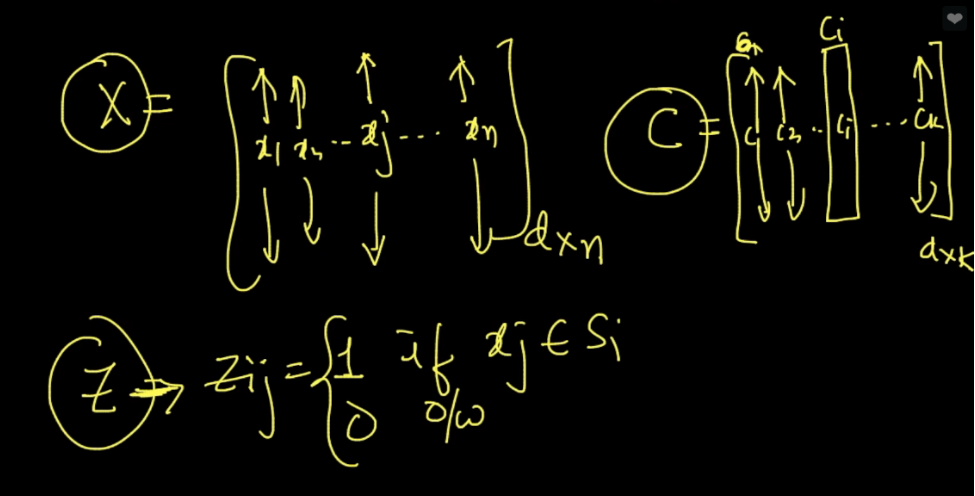 X = [x₁ x₂ ... xⱼ ... xₙ] d×n
Cᵢ
C = [C₁ C₂ ... Cᵢ ... Cₖ] d×K
Z → Zᵢⱼ = { 1 if xⱼ ∈ Sᵢ
0 o/w